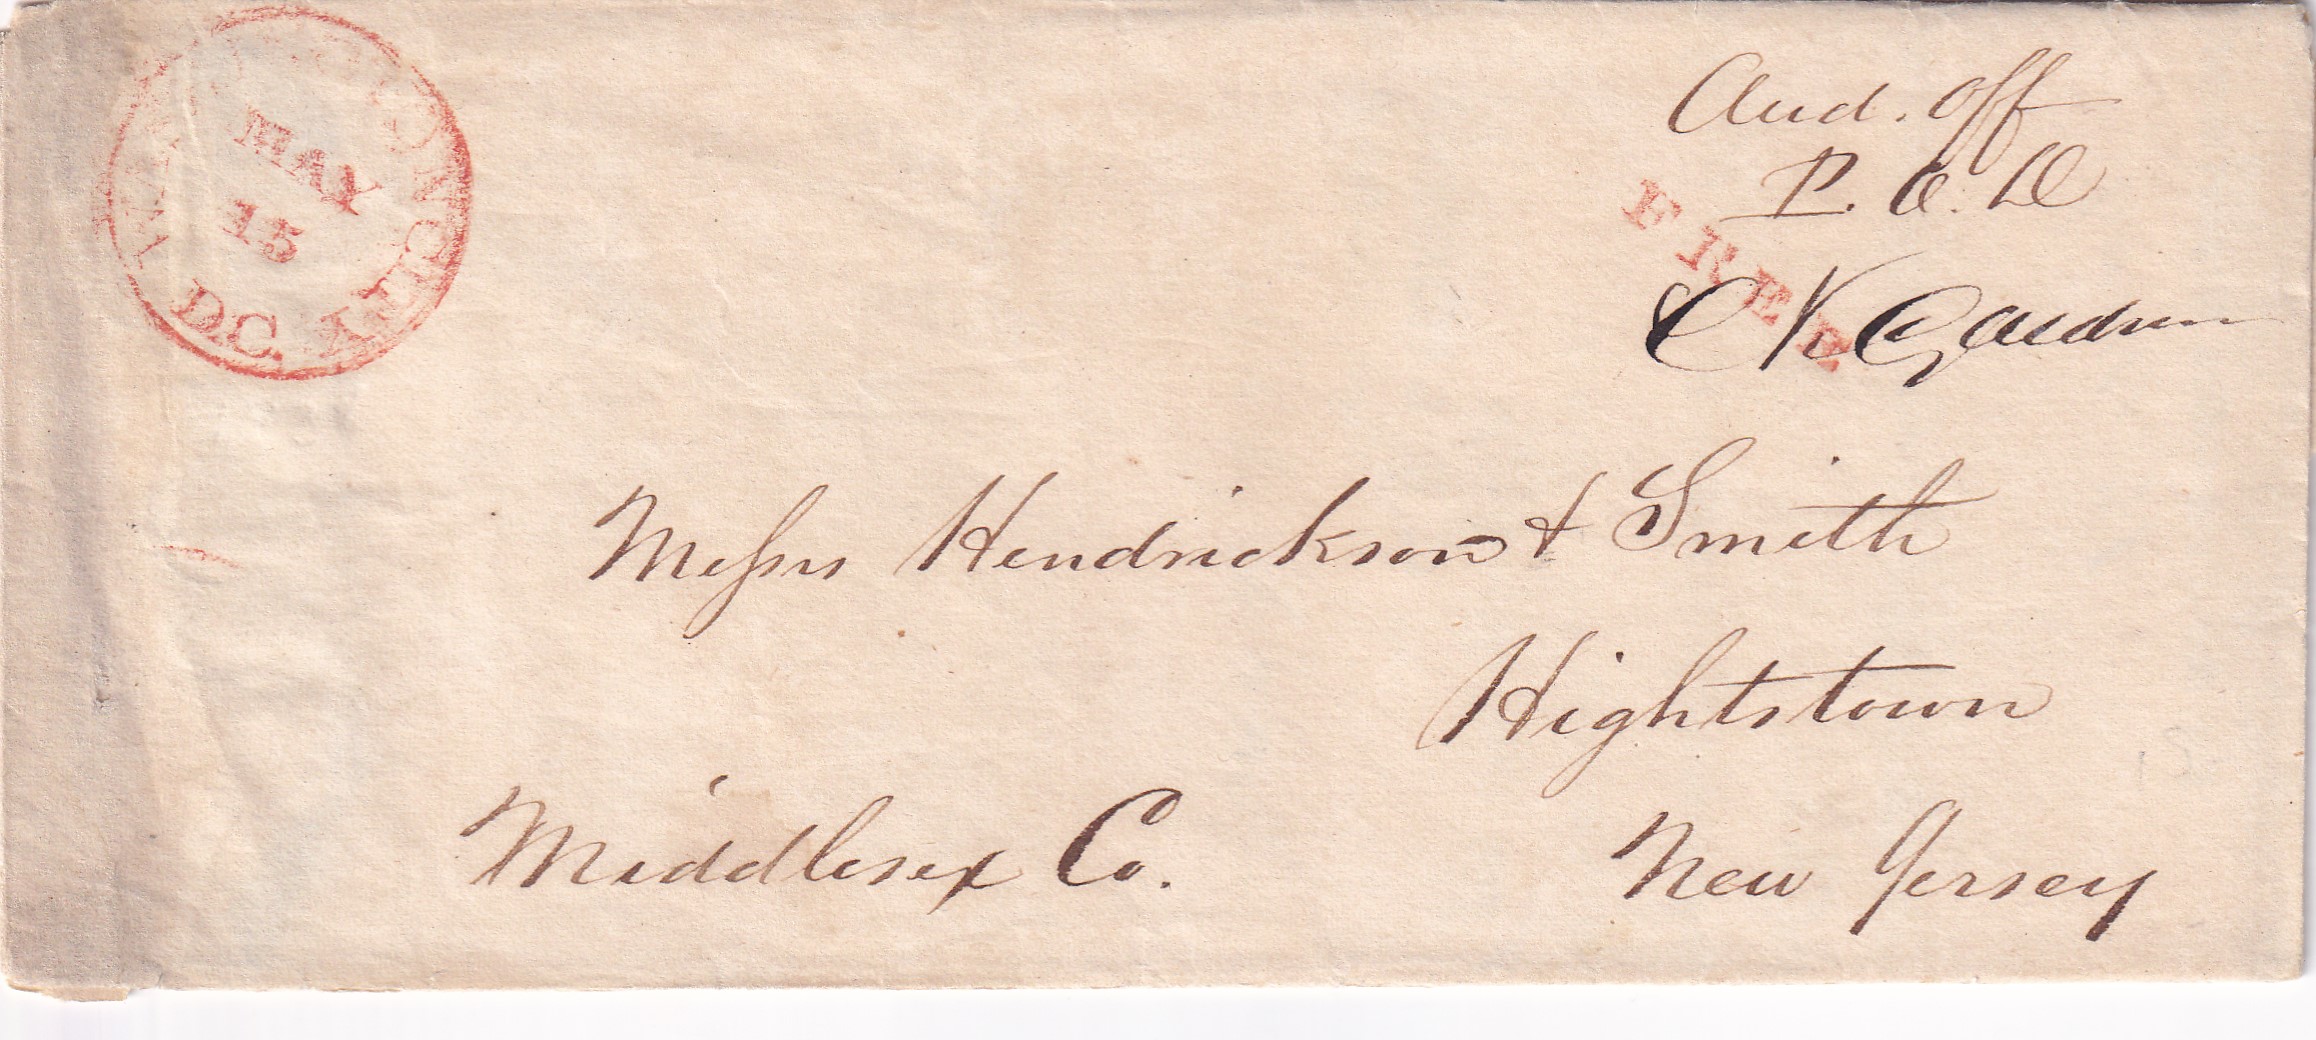 WASHINGTON CITY D.C.
MAY
15
Aud. off
P. O. D
FREE
C K Gardner
Messrs Hendrickson & Smith
Hightstown
Middlesex Co. New Jersey